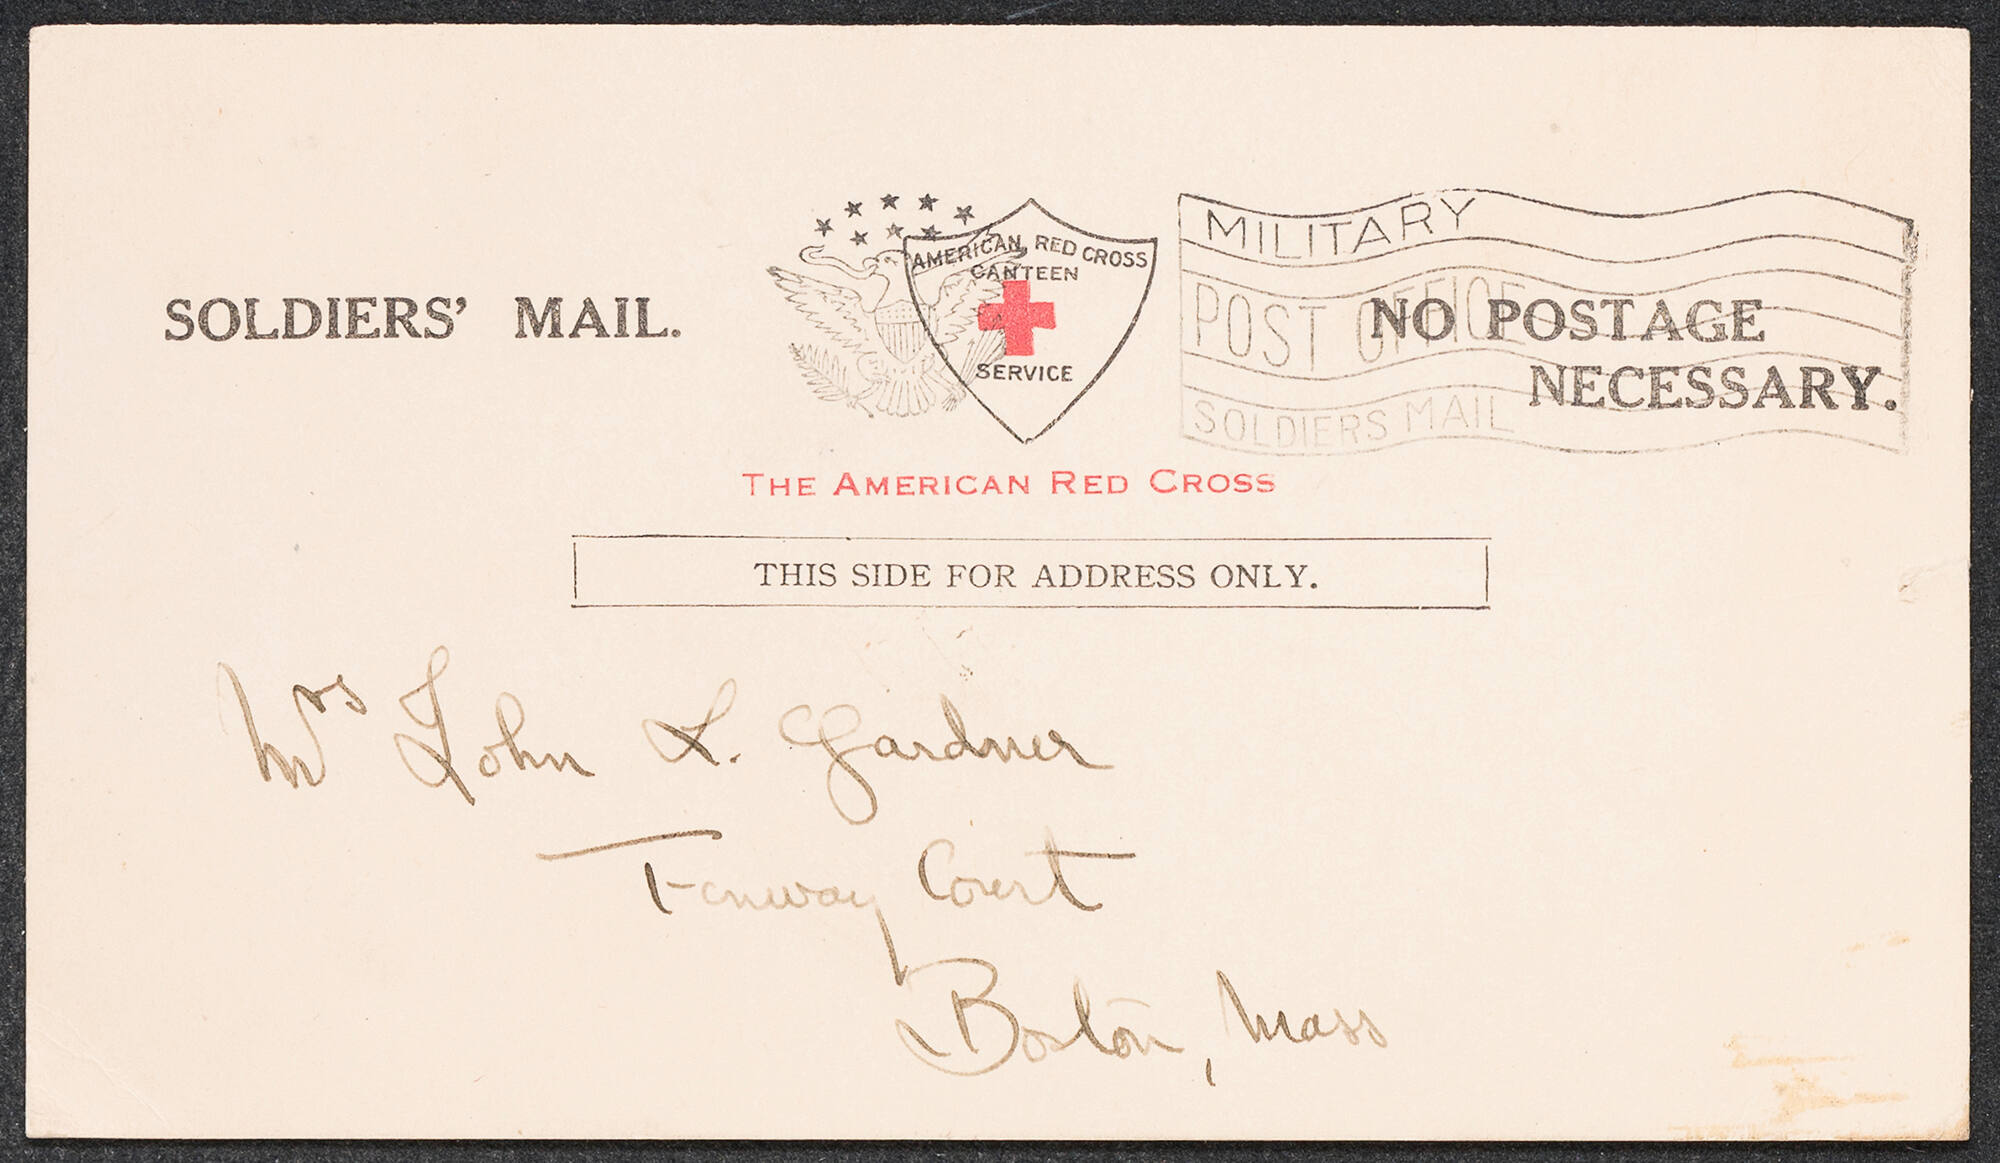 SOLDIERS' MAIL.
AMERICAN RED CROSS
CANTEEN
SERVICE
MILITARY
POST OFFICE
SOLDIERS MAIL
NO POSTAGE
NECESSARY.
THE AMERICAN RED CROSS
THIS SIDE FOR ADDRESS ONLY.
Mrs John L. Gardner
Fenway Court
Boston, Mass